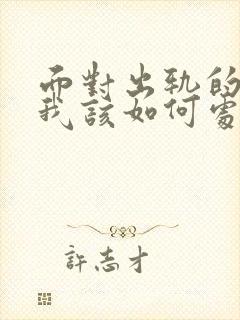 而對出軌的
我該如何處
許志才